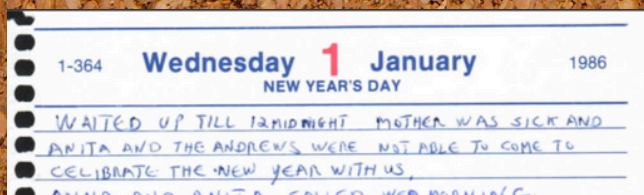 1-364 Wednesday 1 January 1986
NEW YEAR'S DAY
WAITED UP TILL 12 MIDNIGHT MOTHER WAS SICK AND
ANITA AND THE ANDREWS WERE NOT ABLE TO COME TO
CELIBRATE THE NEW YEAR WITH US,
AND ANITA CALLED